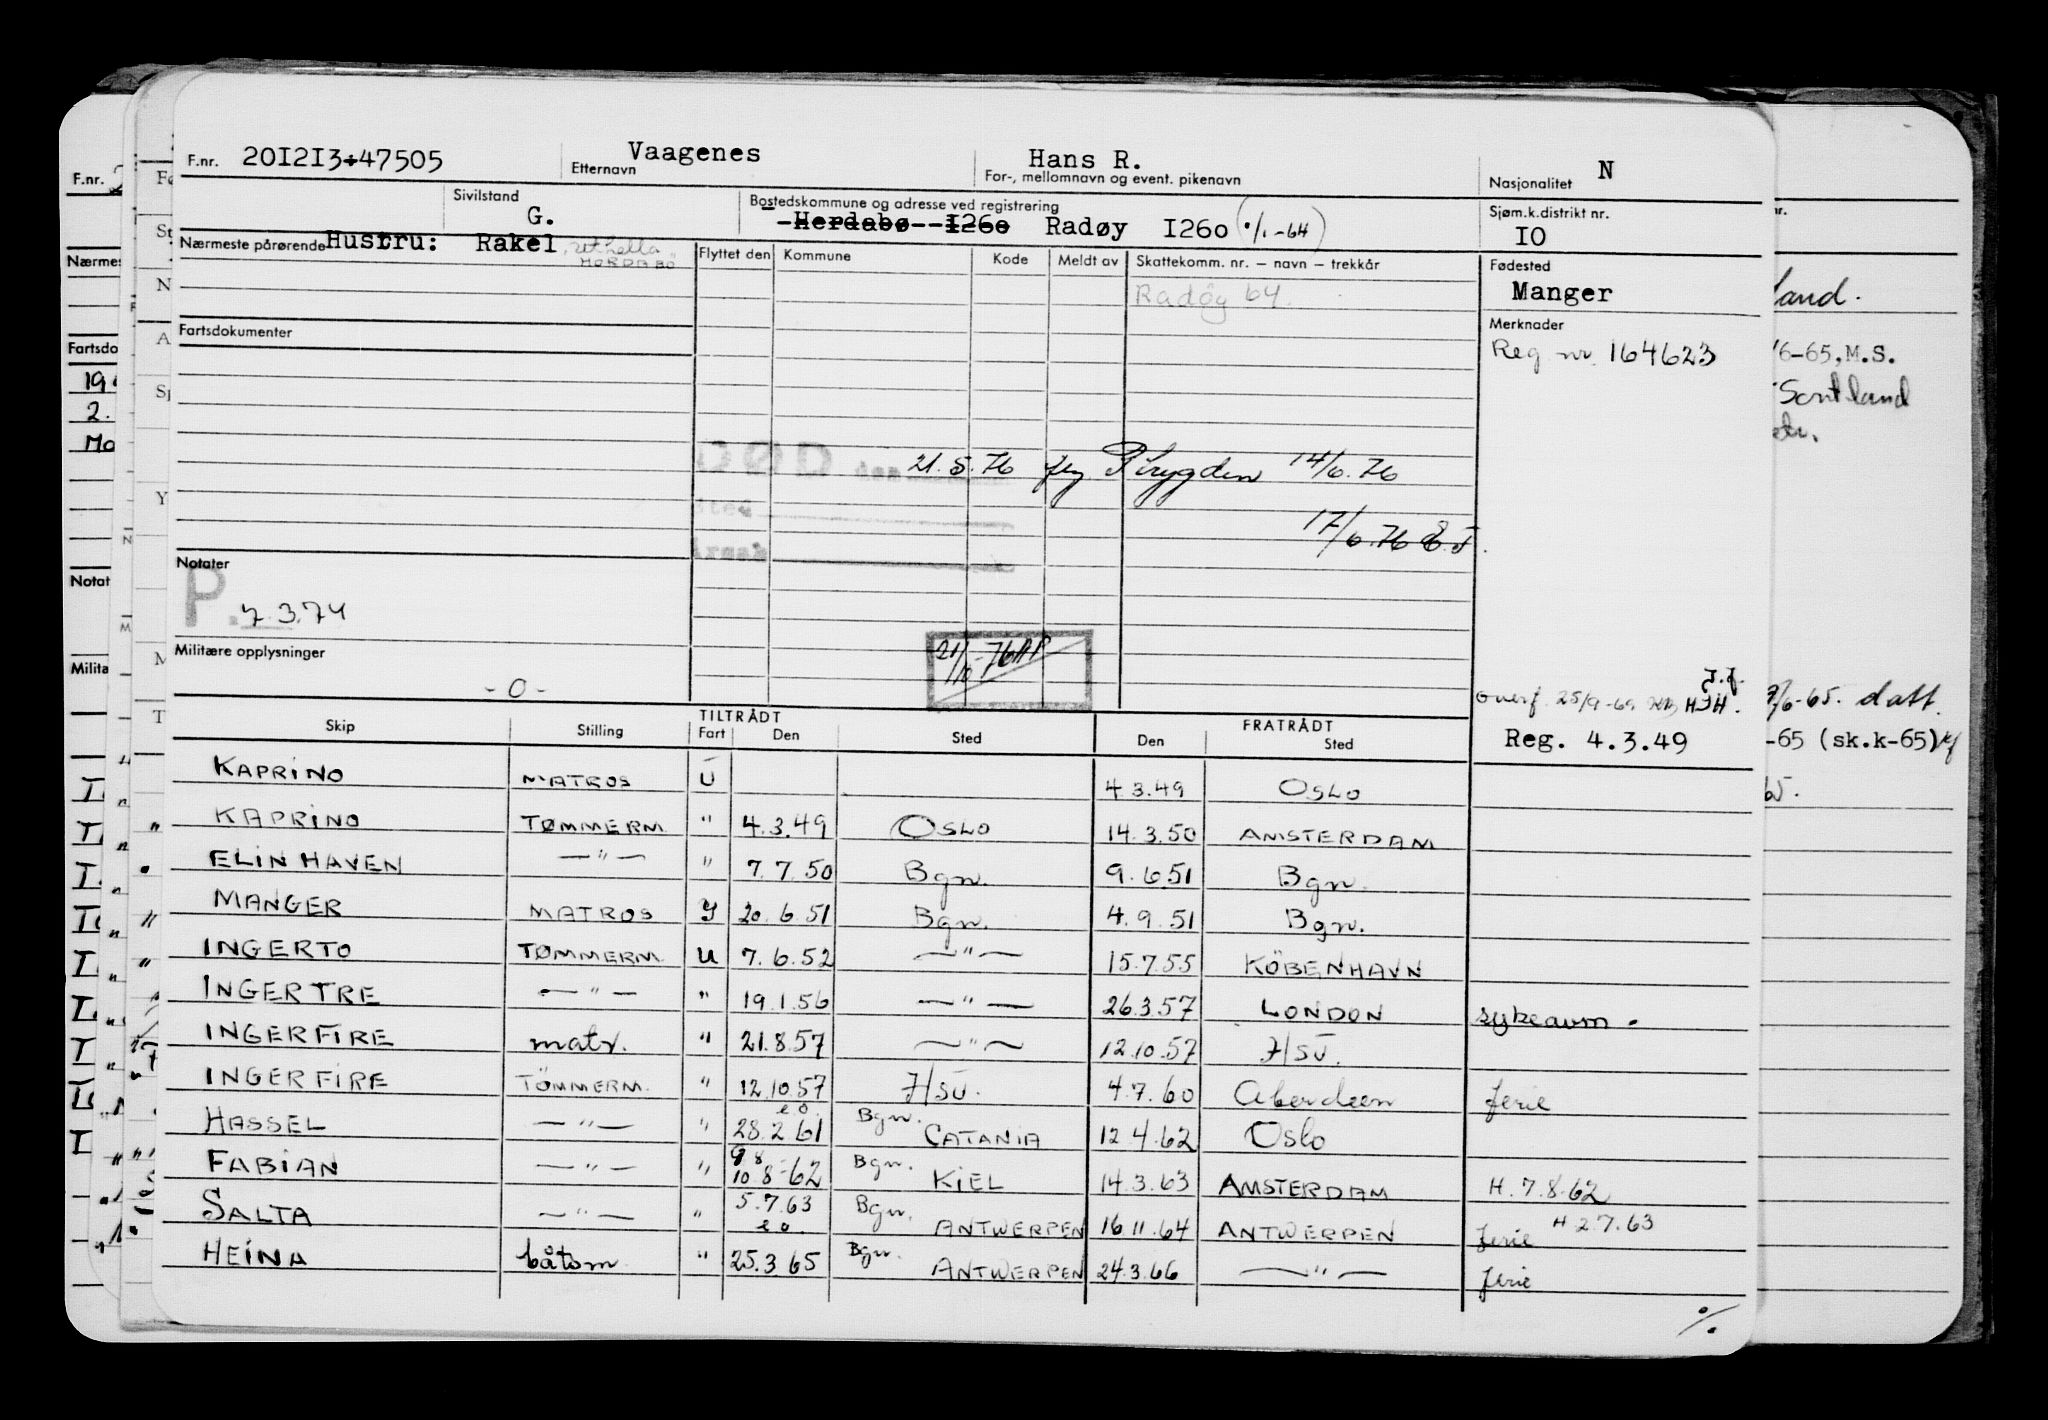 F.nr. 20I2I3+47505 Vaagenes Etternavn Hans R. For-, mellomnavn og event. pikenavn Nasjonalitet N
Sivilstand G. Bostedskommune og adresse ved registrering Herdabø I260 Radøy I260 (1/1-64) Sjøm.k.distrikt nr. IO
Nærmeste pårørende Hustru: Rakel, HORDABÖ Flyttet den Kommune Kode Meldt av Skattekomm. nr. – navn – trekkår Fødested
Radöy 64. Manger
Fartsdokumenter Merknader
Reg nr. 164623
DØD den 21.5.76 14/6.76
Sted 17/6.76
Årsak
Notater
P. 7.3.74
Militære opplysninger 21/10-76
-0-
overf 25/9-69 HJH.
Reg. 4.3.49
Skip Stilling TILTRÅDT Fart Den Sted FRATRÅDT Den Sted
KAPRINO MATROS U 4.3.49 OSLO
KAPRINO TØMMERM. " 4.3.49 OSLO 14.3.50 AMSTERDAM
ELIN HAVEN —"— " 7.7.50 Bgn. 9.6.51 Bgn.
MANGER MATROS Y 20.6.51 Bgn. 4.9.51 Bgn.
INGERTO TØMMERM. U 7.6.52 —"— 15.7.55 KÖBENHAVN
INGERTRE —"— " 19.1.56 —"— 26.3.57 LONDON sykeavm.
INGERFIRE matr. " 21.8.57 —"— 12.10.57 I/SU.
INGERFIRE TÖMMERM. " 12.10.57 I/SU. 4.7.60 Aberdeen ferie
HASSEL —"— " 28.2.61 e.o. Bgn. CATANIA 12.4.62 Oslo
FABIAN —"— " 9.8 10.8-62 Bgn. KIEL 14.3.63 AMSTERDAM H.7.8.62
SALTA —"— " 5.7.63 e.o. Bgn. ANTWERPEN 16.11.64 ANTWERPEN ferie H 2.7.63
HEINA båtsm. " 25.3.65 Bgn. ANTWERPEN 24.3.66 —"— ferie
%.
land.
/6-65, M.S.
7/6-65. datt.
-65 (sk.k-65)
F.nr.
Nærmes
Fartsdo
Notat
Milita